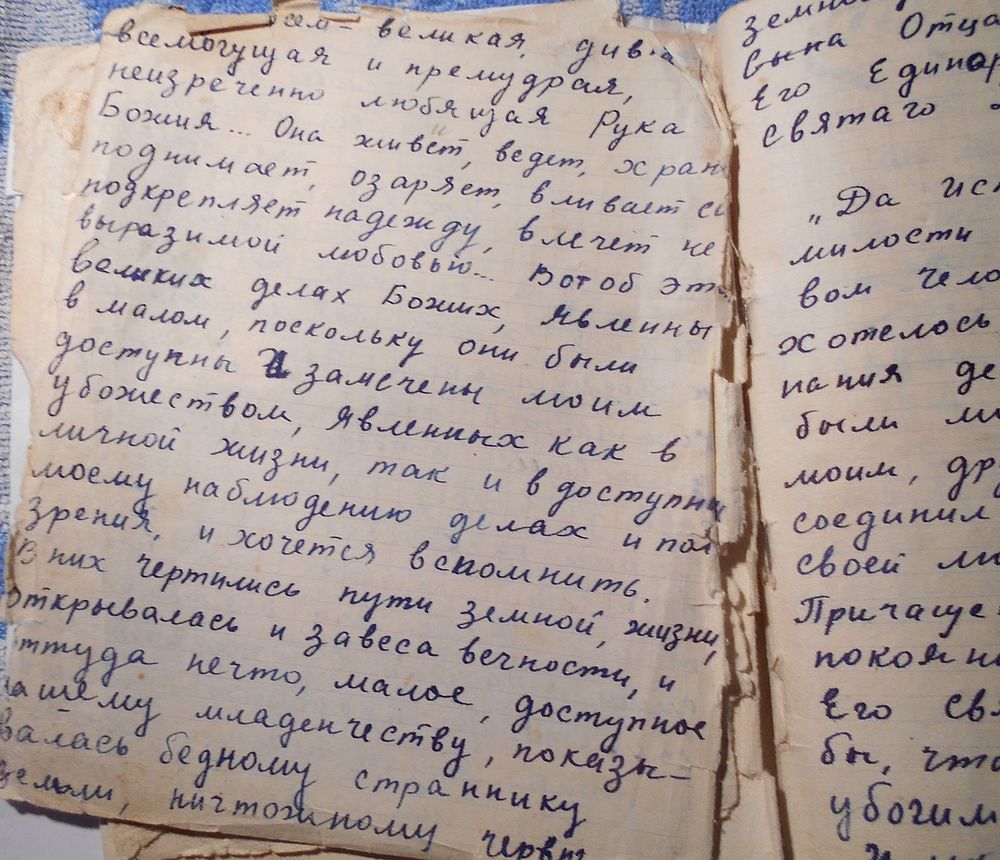 всем – великая, дивна
всемогущая и премудрая,
неизреченно любящая Рука
Божия... Она живёт, ведет, хран
поднимает, озаряет, вливает
подкрепляет надежду, влечет не
выразимой любовью... Вот об эт
великих делах Божиих, явленны
в малом, поскольку они были
доступны и замечены моим
убожеством, явленных как в
личной жизни, так и в доступн
моему наблюдению делах и пол
зрения, и хочется вспомнить.
В них чертились пути земной жизни,
открывалась и завеса вечности, и
оттуда нечто, малое, доступное
нашему младенчеству, показы-
валась бедному страннику
земли, ничтожному черв
земно
Сына Отца
Его Единор
святаго
„Да ист
милости
вом чело
хотелось
нания де
были ми
моим, др
соединил
своей ли
Причаще
покоя не
Его св
бы, что
убогим